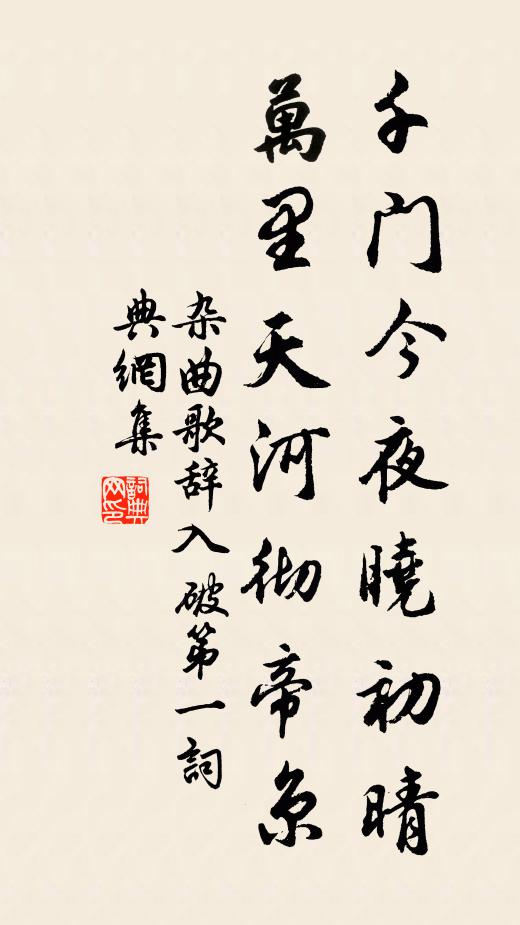 千門今夜曉初晴
萬里天河徹帝京
杂曲歌辞入破第一詞
典網集
詞典
网印